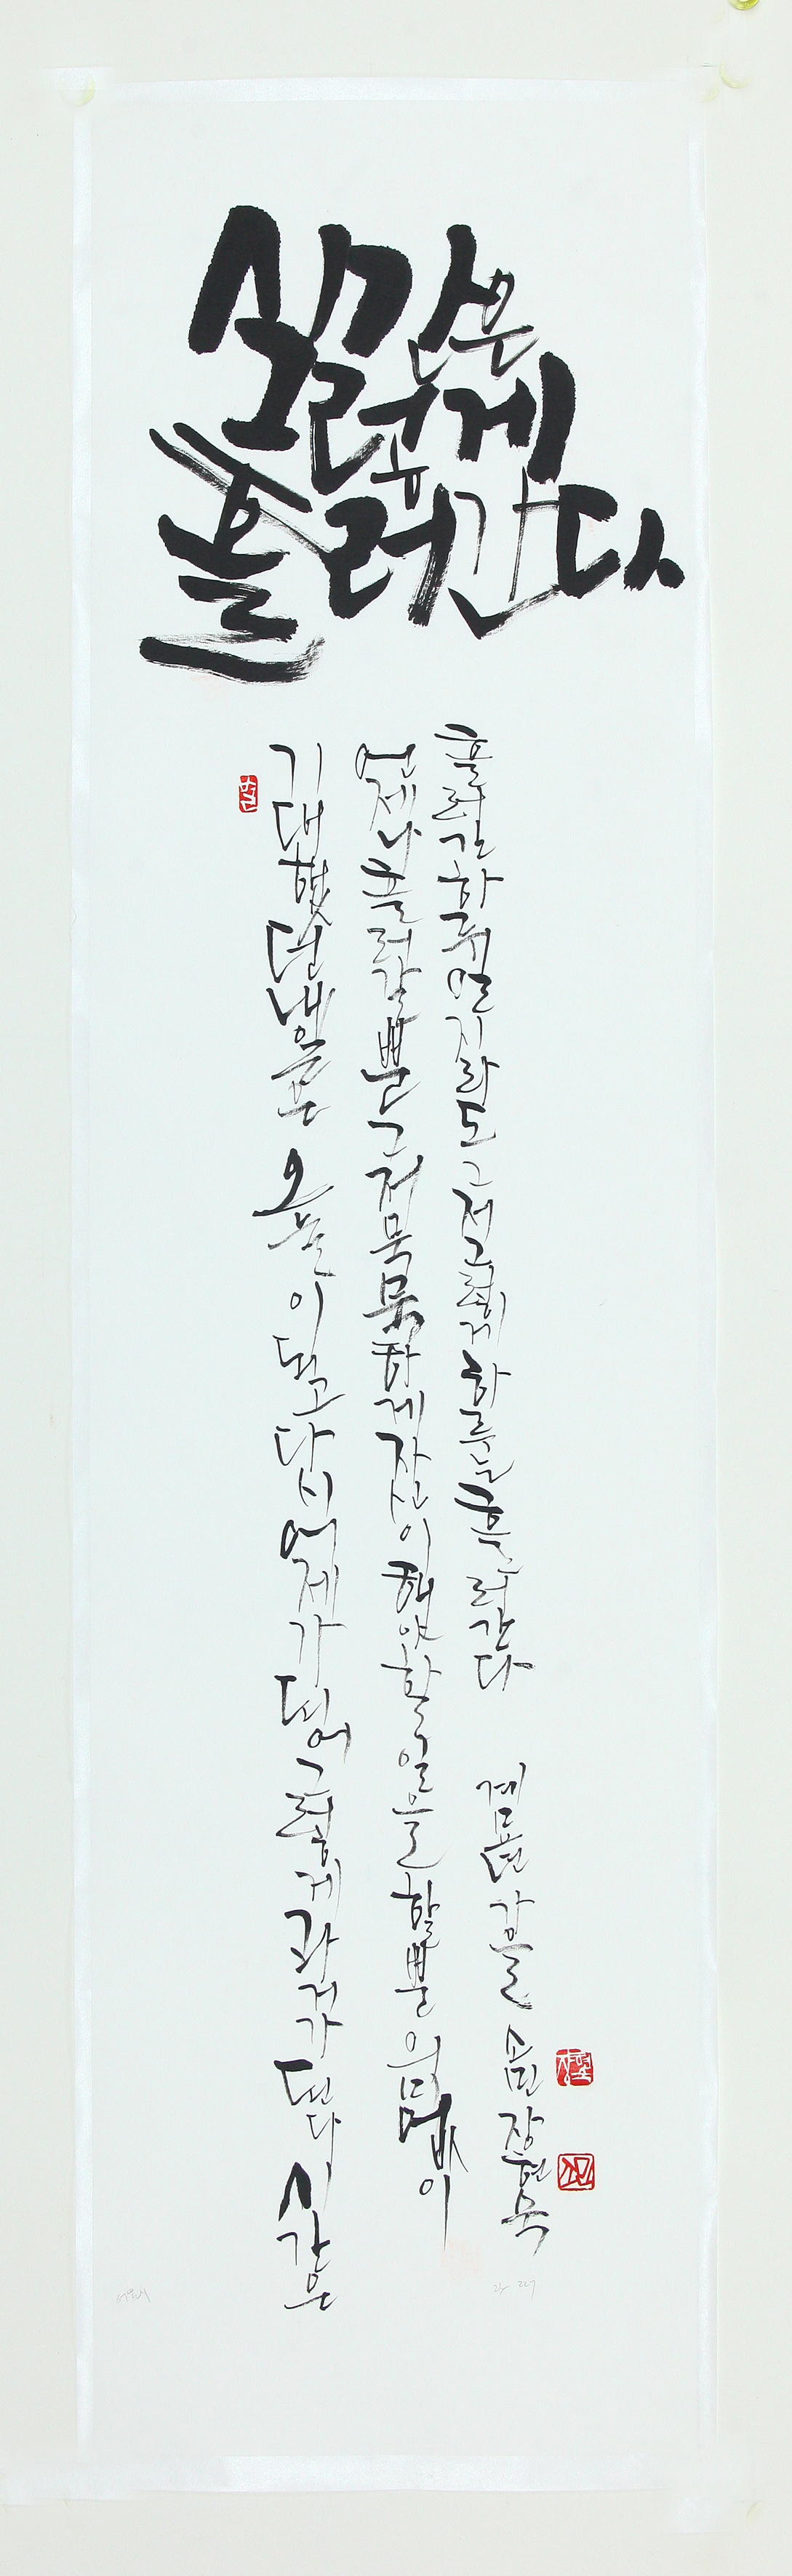 시간은
그렇게
흘러간다
기대했던 내일은 오늘이 되고 다시 어제가 되어 그렇게 과거가 된다 시간은
언제나 흘러갈 뿐 그저 묵묵하게 자신이 해야 할 일을 할 뿐 의미 없이
흘러간 하루일지라도 그저 그렇게 하루는 흘러간다
계묘년 가을 소민